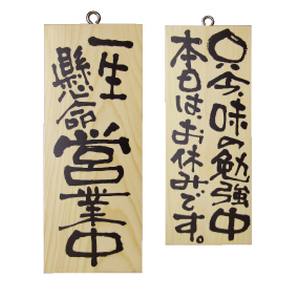 一生
懸命
営業中
只今味の勉強中
本日はお休みです。